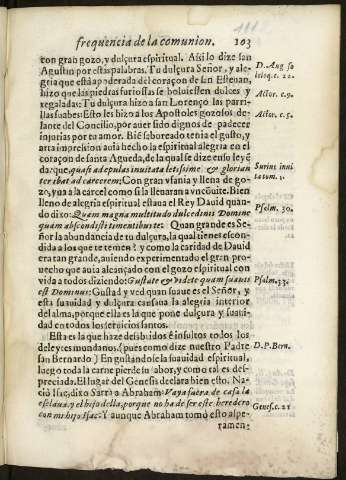 frequencia de la comunion. 103
con gran gozo, y dulçura espiritual. Asi lo dize san
Agustin por estas palabras. Tu dulçura Señor, y ale-
gria que està apoderada del coraçon de san Esteuan,
hizo que las piedras furiossas se boluiessen dulces y
regaladas: Tu dulçura hizo a san Lorenço las parri-
llas suabes: Esto les hizo a los Apostoles gozosos de-
lante del Concilio, por auer sido dignos de padecer
injurias por tu amor. Bié seboreado tenia el gusto, y
arta impresion auia hecho la espiritual alegria en el
coraçon de santa Agueda, de la qual se dize en so ley
da: que, quasi ad epulas inuitata letissime & glorian
ter ibat ad carcerem; Con gran vfania y llena de go-
zo, yua a la carcel como si la lleuaran a vn cõuite. Bien
lleno de alegria espiritual estaua el Rey Dauid quan-
do dixo: Quam magna multitudo dulcedinis Domine
quam abscondisti timentibus te: Quan grande es Se-
ñor la abundancia de tu dulçura, la qual tienes escon-
dida a los que te temen? y como la caridad de Dauid
era tan grande, auiendo experimentado el gran pro-
uecho que auia alcançado con el gozo espiritual con
vida a todos diziendo: Gustate & videte quam suauis
est Dominus: Gustad y ved quan suaue es el Señor, y
esta suauidad y dulçura causana la alegria interior
del alma, porque ella es la que pone dulçura y suaui-
dad en todos los seruicios santos.
Esta es la que haze desibidos è insultos todos los
deleytes mundanos (pues como dize nuestro Padre
san Bernardo.) En gustandose la suauidad espiritual,
luego toda la carne pierde su labor, y como tal es des-
preciada. El lugar del Genesis declara bien esto. Na-
ciò Isac, dixo Sarra a Abraham: Vaya fuera de casa la
esclaua, y el hijo della, porque no ha de ser este heredero
con mi hijo Isac: Y aunque Abraham tomò esto aspe-
ramen-
D. Aug. so
liloq. c. 22.
Actor. c. 9.
Actor. c. 5.
Surius in
Psalm. 30.
Psalm. 33.
D. P. Bern.
Genes. c. 21